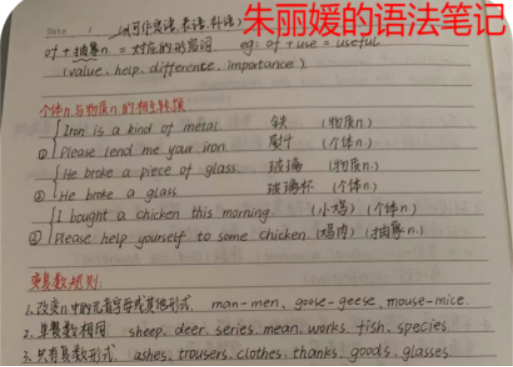 朱丽媛的语法笔记
Date / (从可作定语、表语、补语)
of + 抽象n = 对应的形容词 eg: of + use = useful
(value、help、differente、impotance)
个体n与物质n的相互转换
① Iron is a kind of metal 铁 (物质n.)
Please lend me your iron 熨斗 (个体n.)
② He broke a piece of glass 玻璃 (物质n.)
He broke a glass 玻璃杯 (个体n.)
③ I bought a chicken this morning. (小鸡) (个体n.)
Please help yourself to some chicken. (鸡肉) (抽象n.)
变复数规则:
1. 改变n.中的元音字母或其他形式. man-men、goose-geese、mouse-mice.
2. 单复数相同. sheep、deer、series、mean、works、fish、species.
3. 只有复数形式. ashes、trousers、clothes、thanks、goods、glasses.